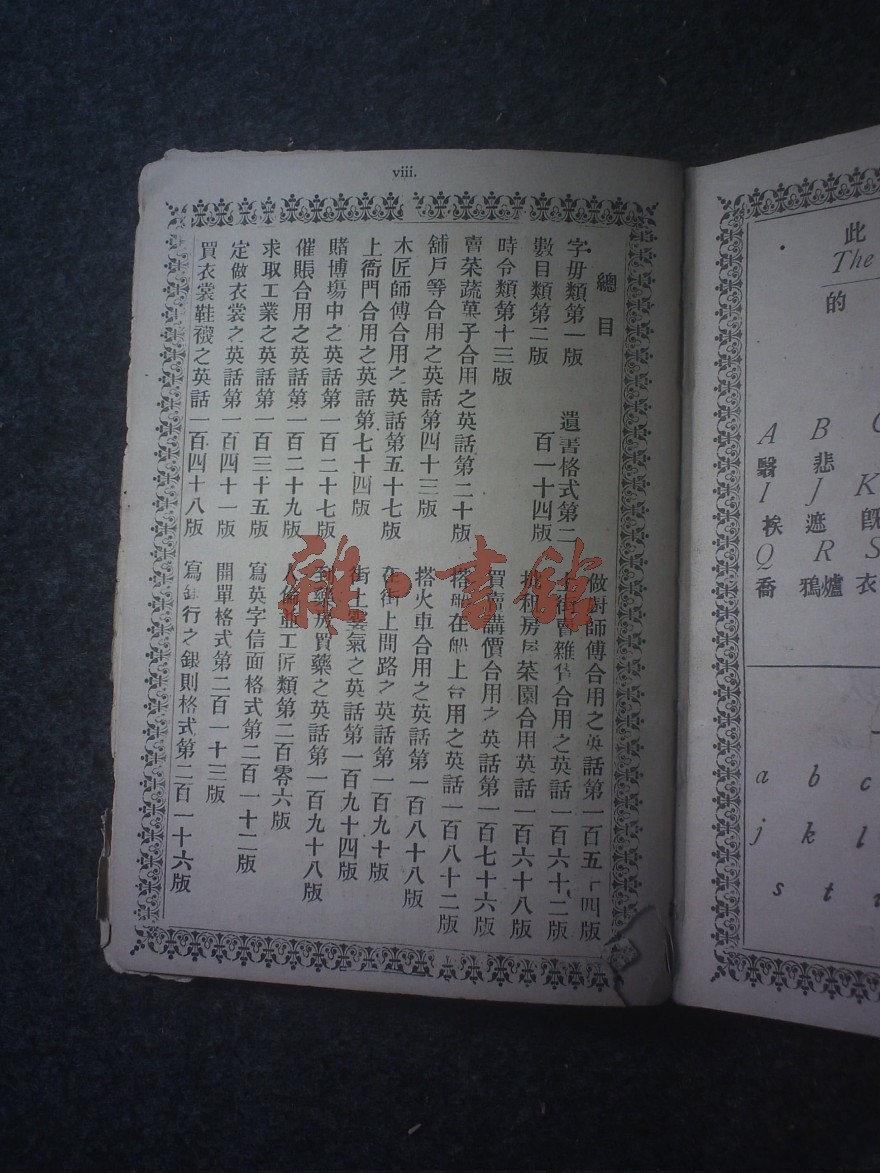 viii.
總目
字毋類第一版
遺書格式第二
百一十四版
數目類第二版
時令類第十三版
賣菜蔬菓子合用之英話第二十版
舖戶等合用之英話第四十三版
木匠師傅合用之英話第五十七版
上衙門合用之英話第七十四版
賭博塲中之英話第一百二十七版
催賬合用之英話第一百二十九版
求取工業之英話第一百三十五版
定做衣裳之英話第一百四十一版
買衣裳鞋襪之英話一百四十八版
做厨師傅合用之英話第一百五十四版
合用之英話一百六十二版
菜園合用英話一百六十八版
買賣講價合用之英話第一百七十六版
搭船在船上合用之英話一百八十二版
搭火車合用之英話第一百八十八版
在街上問路之英話第一百九十版
街上之英話第一百九十四版
到藥房買藥之英話第一百九十八版
人倫並工匠類第二百零六版
寫英字信面格式第二百一十二版
開單格式第二百一十三版
寫銀行之銀則格式第二百一十六版
雜·書館
此
The
的
A B C
翳 悲
I J K
挨 遮 旣
Q R S
喬 鴉爐 衣
a b c
j k l
s t